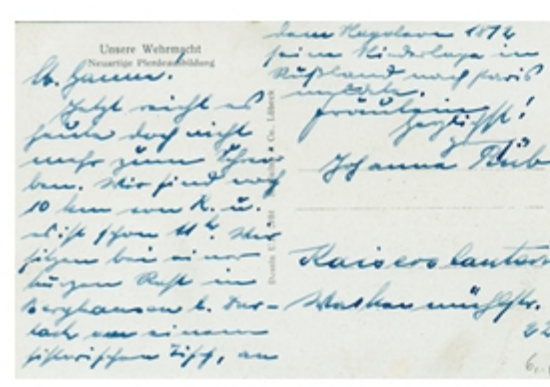 Unsere Wehrmacht
Neuartige Pferdeausbildung
lb. Hanne!
Jetzt reicht es
heute doch nicht
mehr zum Schrei-
ben. Wir sind noch
10 km von K. u.
es ist schon 11 h. Wir
sitzen bei einer
kurzen Rast in
Berghausen b. Dur-
lach an einem
historischen Tisch, an
dem Napoleon 1812
seine Niederlage in
Rußland nach Paris
meldete.
Fräulein
Johanna
Kaiserslautern